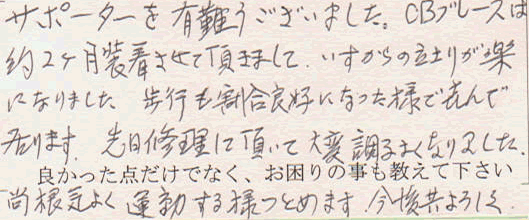 サポーターを有難うございました。CBブレースは
約2ヶ月装着させて頂きまして、いすからの立上りが楽
になりました 歩行も割合良好になった様で喜んで
居ります。先日修理に頂いて大変調子よくなりました。
良かった点だけでなく、お困りの事も教えて下さい
尚根気よく運動する様つとめます 今後共よろしく.